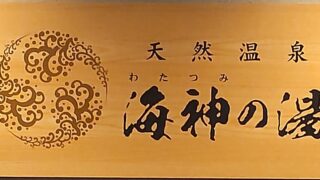 天然温泉
わたつみ
海神の湯